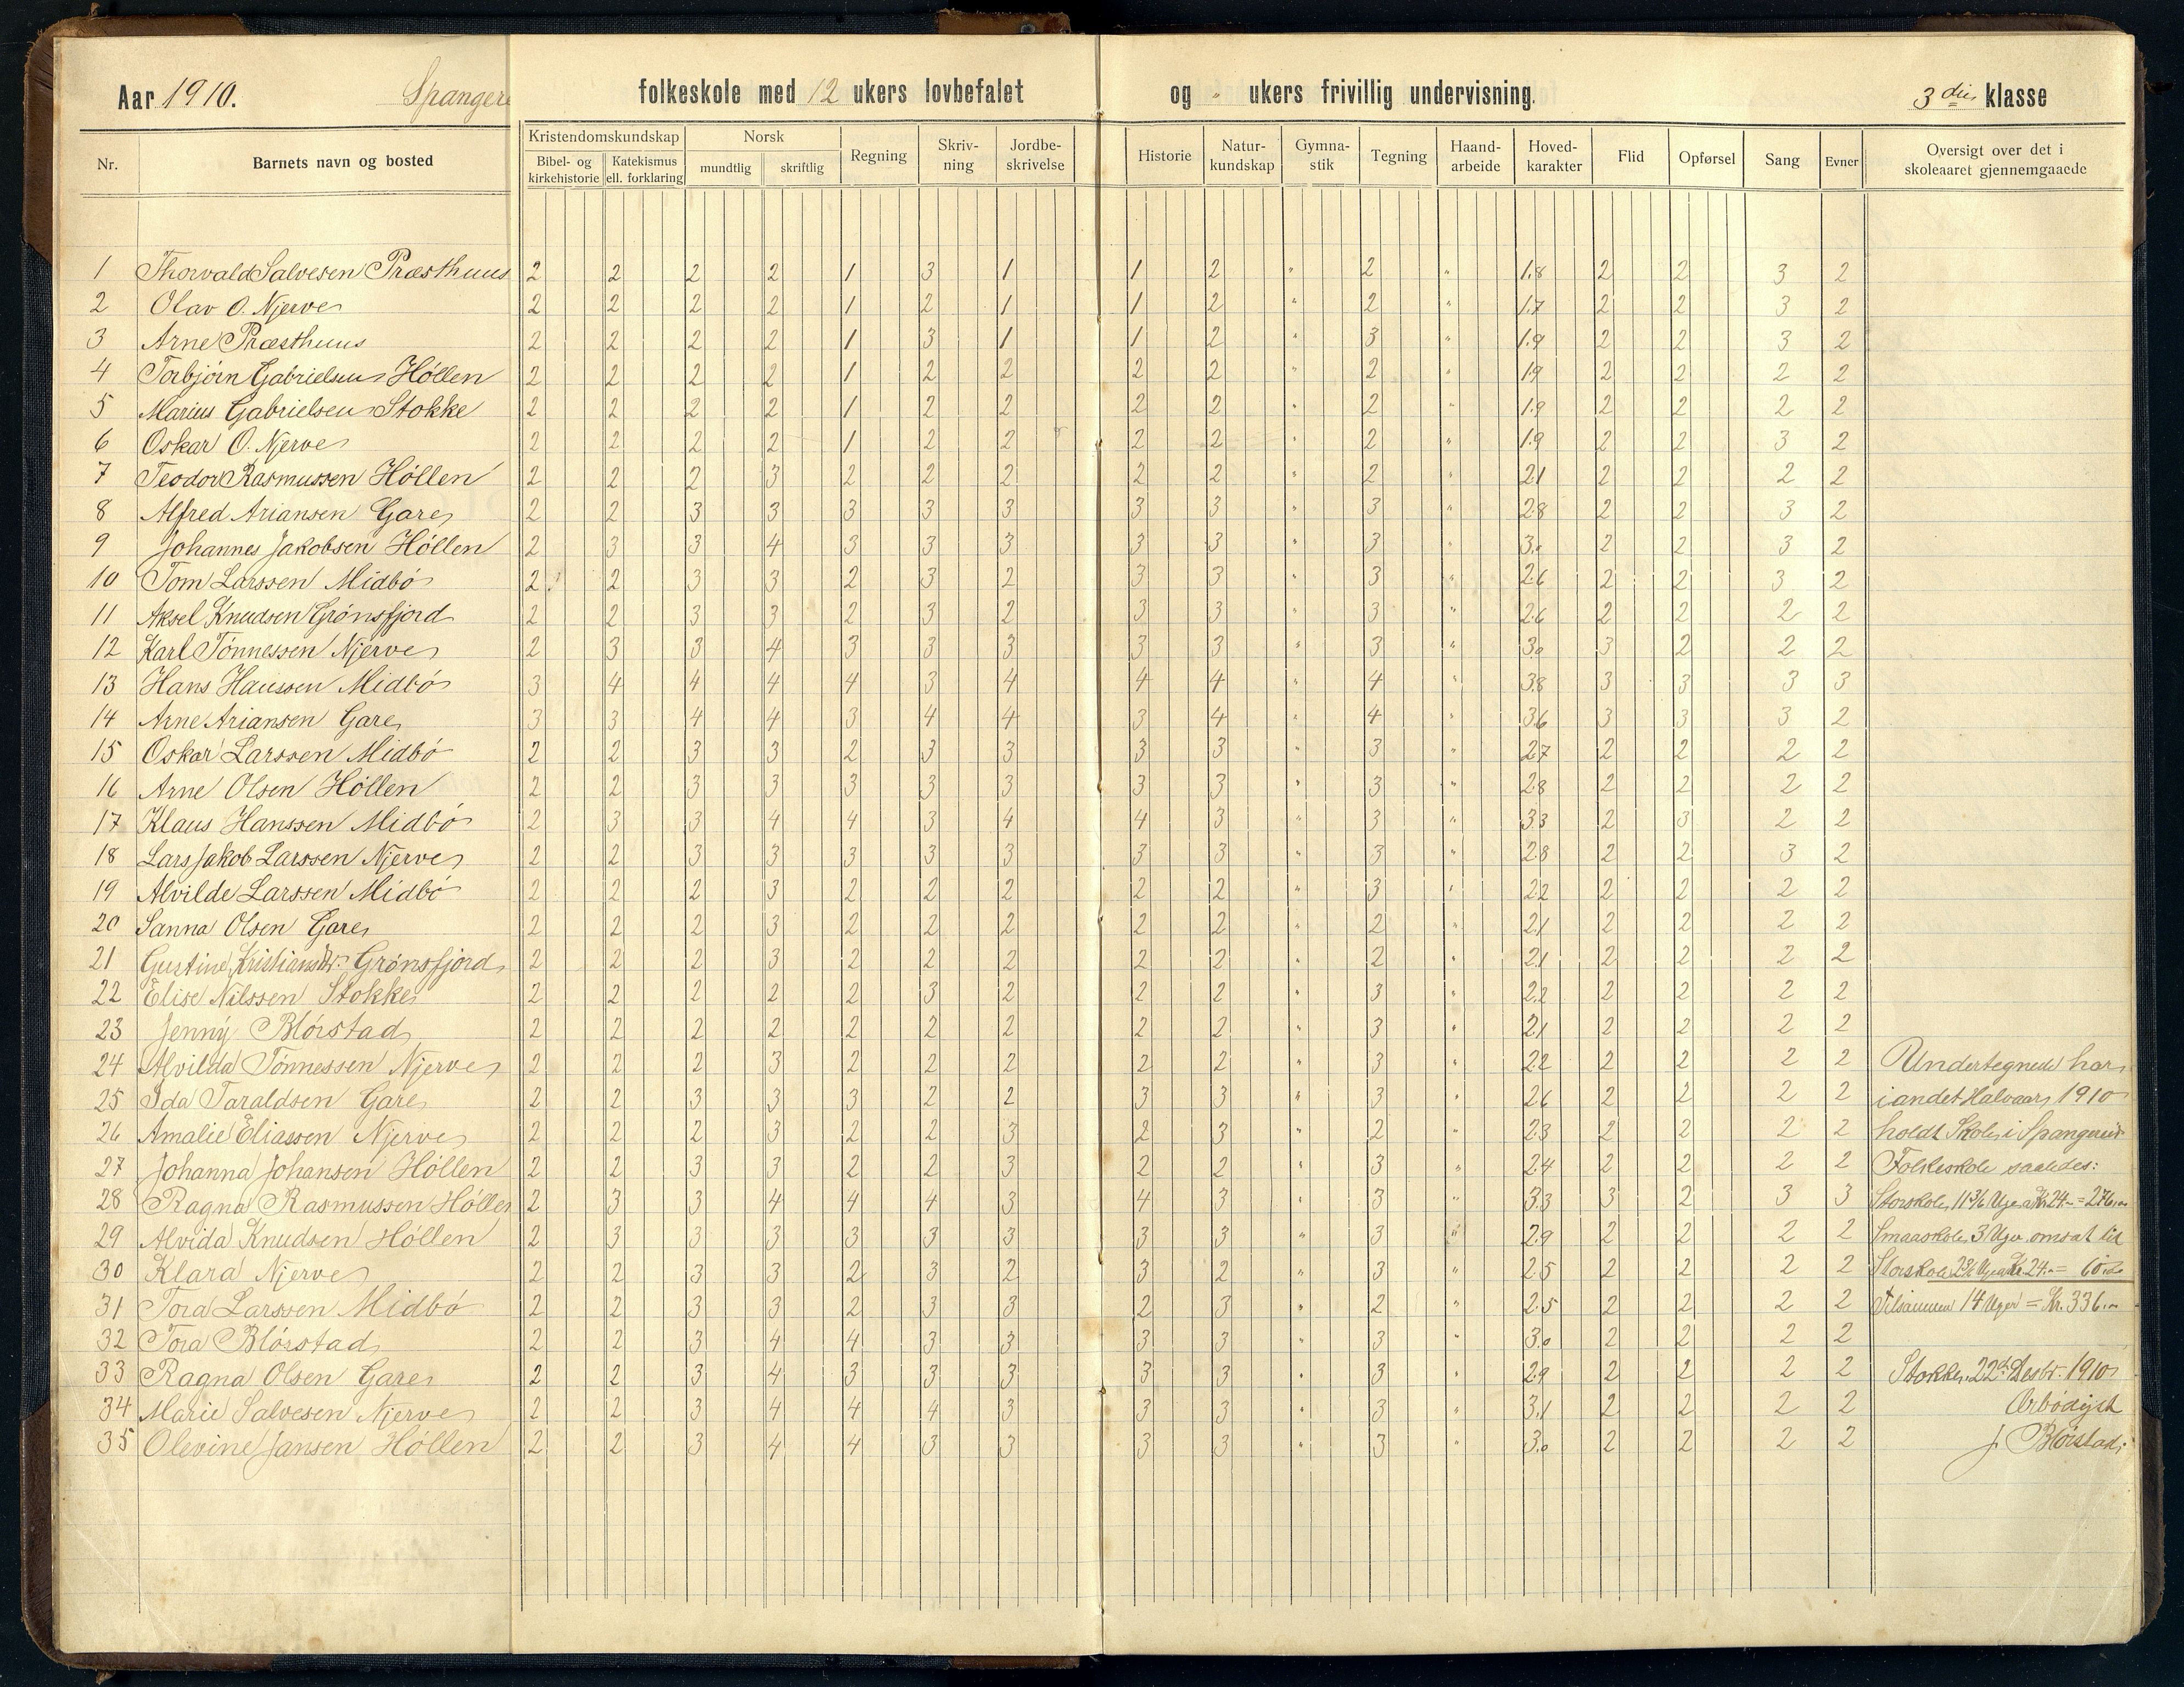 Aar 1910. Spangere folkeskole med 12 ukers lovbefalet og " ukers frivillig undervisning. 3 die klasse
Nr. Barnets navn og bosted Kristendomskundskap Bibel- og kirkehistorie Katekismus ell. forklaring Norsk mundtlig skriftlig Regning Skriv- ning Jordbe- skrivelse Historie Natur- kundskap Gymna- stik Tegning Haand- arbeide Hoved- karakter Flid Opførsel Sang Evner Oversigt over det i skoleaaret gjennemgaaede
1 Thorvald Salvesen Præsthuus 2 2 2 2 1 3 1 1 2 " 2 " 1.8 2 2 3 2
2 Olav O. Njerve 2 2 2 2 1 2 1 1 2 " 2 " 1.7 2 2 3 2
3 Arne Præsthuus 2 2 2 2 1 3 1 1 2 " 3 " 1.9 2 2 3 2
4 Torbjörn Gabrielsen Höllen 2 2 2 2 1 2 2 2 2 " 2 " 1.9 2 2 2 2
5 Marius Gabrielsen Stokke 2 2 2 2 1 2 2 2 2 " 2 " 1.9 2 2 2 2
6 Oskar O. Njerve 2 2 2 2 1 2 2 2 2 " 2 " 1.9 2 2 3 2
7 Teodor Rasmussen Höllen 2 2 2 3 2 2 2 2 2 " 2 " 2.1 2 2 2 2
8 Alfred Ariansen Gare 2 2 3 3 3 3 3 3 3 " 3 " 2.8 2 2 3 2
9 Johannes Jakobsen Höllen 2 3 3 4 3 3 3 3 3 " 3 " 3.0 2 2 3 2
10 Tom Larssen Midbö 2 2 3 3 2 3 2 3 3 " 3 " 2.6 2 2 3 2
11 Aksel Knudsen Grönsfjord 2 2 3 3 2 3 2 3 3 " 3 " 2.6 2 2 2 2
12 Karl Tönnessen Njerve 2 3 3 4 3 3 3 3 3 " 3 " 3.0 3 2 2 2
13 Hans Hanssen Midbö 3 4 4 4 4 3 4 4 4 " 4 " 3.8 3 3 3 3
14 Arne Ariansen Gare 3 3 4 4 3 4 4 3 4 " 4 " 3.6 3 3 3 2
15 Oskar Larssen Midbö 2 2 3 3 2 3 3 3 3 " 3 " 2.7 2 2 2 2
16 Arne Olsen Höllen 2 2 3 3 3 3 3 3 3 " 3 " 2.8 2 2 2 2
17 Klaus Hanssen Midbö 2 3 3 4 4 3 4 4 3 " 3 " 3.3 2 3 2 2
18 Lars Jakob Larssen Njerve 2 2 3 3 3 3 3 3 3 " 3 " 2.8 2 2 3 2
19 Alvilde Larssen Midbö 2 2 2 3 2 2 2 2 2 " 3 " 2.2 2 2 2 2
20 Sanna Olsen Gare 2 2 2 3 2 2 2 2 2 " 2 " 2.1 2 2 2 2
21 Gustine Kristiansdr. Grönsfjord 2 2 2 3 2 2 2 2 2 " 2 " 2.1 2 2 2 2
22 Elise Nilssen Stokke 2 2 2 2 2 3 2 2 2 " 3 " 2.2 2 2 2 2
23 Jenny Blörstad 2 2 2 2 2 2 2 2 2 " 3 " 2.1 2 2 2 2
24 Alvilda Tönnessen Njerve 2 2 2 3 2 2 2 2 2 " 3 " 2.2 2 2 2 2 Undertegnede har
25 Ida Taraldsen Gare 2 2 3 3 3 2 2 3 3 " 3 " 2.6 2 2 2 2 i andet Halvaar 1910
26 Amalie Eliassen Njerve 2 2 2 3 2 2 3 2 3 " 2 " 2.3 2 2 2 2 holdt Skole i Spangereid
27 Johanna Johansen Höllen 2 2 3 3 2 2 3 2 2 " 3 " 2.4 2 2 2 2 Folkeskole saaledes:
28 Ragna Rasmussen Höllen 2 3 3 4 4 4 3 4 3 " 3 " 3.3 3 2 3 3 Storskole 11 3/6 Uge a Kr. 24.- = 276.-
29 Alvida Knudsen Höllen 2 3 3 3 3 3 3 3 3 " 3 " 2.9 2 2 2 2 Smaaskole 3 Uger omsat til
30 Klara Njerve 2 2 3 3 2 3 2 3 2 " 3 " 2.5 2 2 2 2 Storskole 2 3/6 Uge a Kr. 24.- = 60.-
31 Tora Larssen Midbö 2 2 3 3 2 3 3 2 3 " 2 " 2.5 2 2 2 2 Tilsammen 14 Uger = Kr. 336.-
32 Tora Blörstad 2 2 3 4 4 3 3 3 3 " 3 " 3.0 2 2 2 2
33 Ragna Olsen Gare 2 2 3 4 3 3 3 3 3 " 3 " 2.9 2 2 2 2 Stokke 22de Desbr. 1910
34 Marie Salvesen Njerve 2 2 3 4 4 4 3 3 3 " 3 " 3.1 2 2 2 2 Ærbödigst
35 Olevine Jansen Höllen 2 2 3 4 4 3 3 3 3 " 3 " 3.0 2 2 2 2 J. Blörstad.